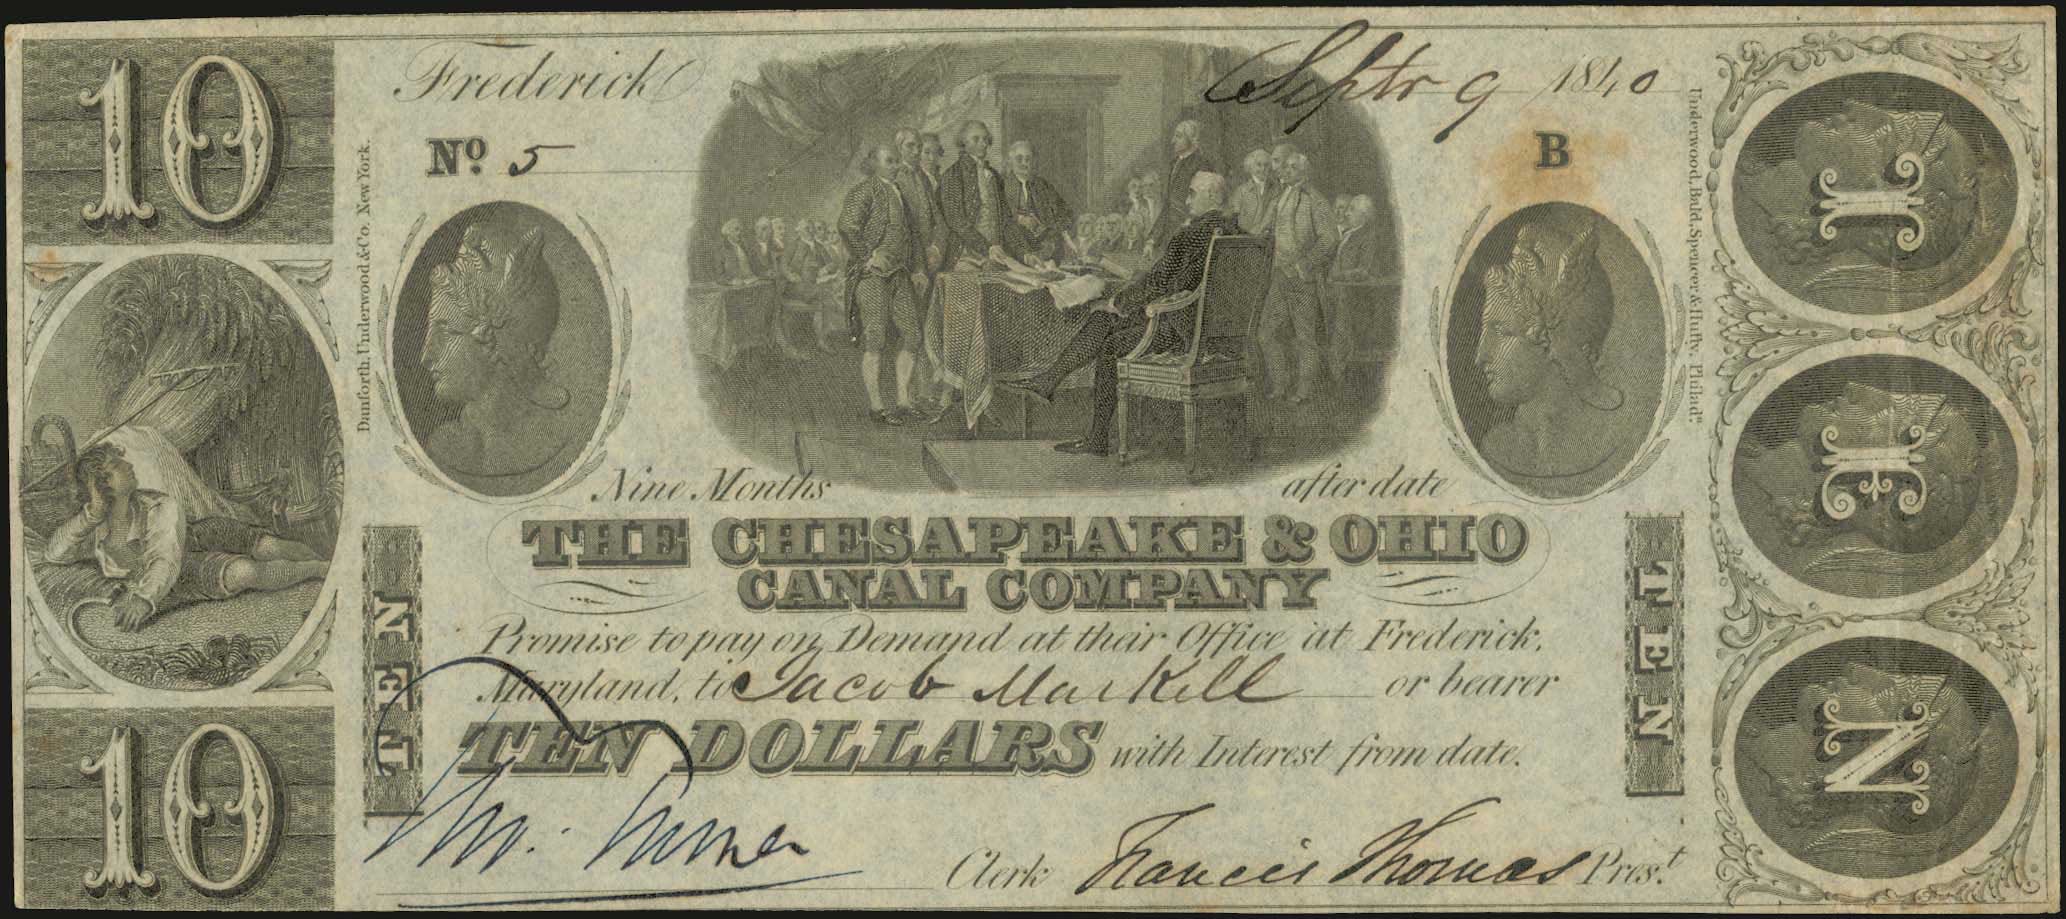 10
Frederick Septr 9 1840
No. 5
B
Danforth, Underwood & Co. New York.
Underwood, Bald, Spencer & Hufty, Philada.
Nine Months after date
THE CHESAPEAKE & OHIO
CANAL COMPANY
Promise to pay on Demand at their Office at Frederick,
Maryland, to Jacob Markell or bearer
TEN DOLLARS with Interest from date.
Tho. Turner Clerk Francis Thomas Prest.
10
TEN
TEN
TEN